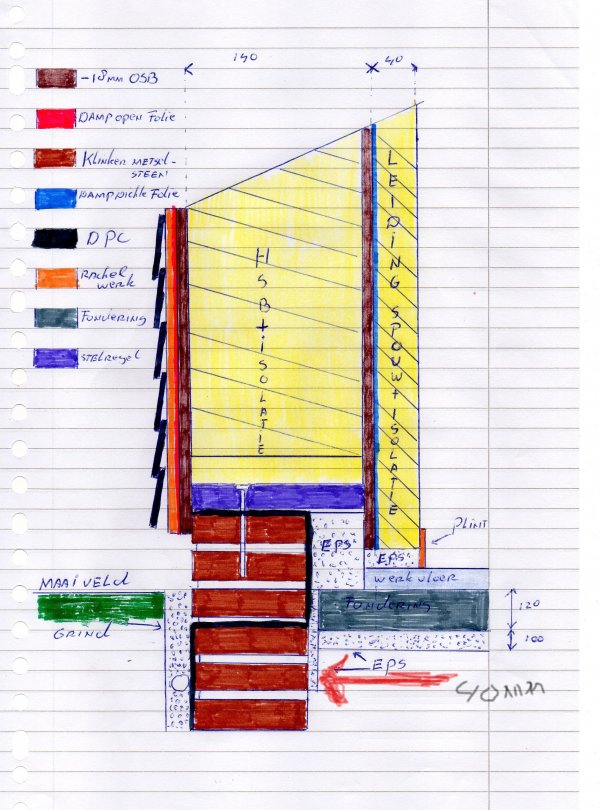 140
40
-18mm OSB
DAMP OPEN FOLIE
KLINKER METSEL-
STEEN
DAMPDICHTE FOLIE
DPC
RACHEL
WERK
FUNDERING
STELREGEL
HSB+ISOLATIE
LEIDING SPOUW+ISOLATIE
PLINT
EPS
EPS
WERKVLOER
MAAIVELD
FUNDERING
120
GRIND
100
EPS
40mm